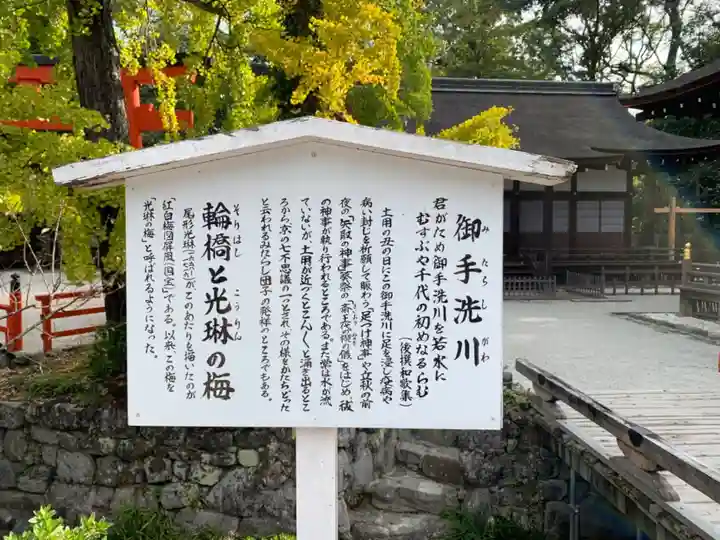 御手洗川
みたらしがわ
君がため御手洗川を若水に
むすぶや千代の初めなるらむ
(後撰和歌集)
土用の丑の日にこの御手洗川に足を浸し疫病や
病い封じを祈願して賑わう「足つけ神事」や立秋の前
夜の「矢取の神事」葵祭の「斎王代の禊の儀」をはじめ「祓
の神事が執り行われるところである。また常は水が流れ
ていないが、土用が近づくとこんこんと涌き出るとこ
ろから、京の七不思議の一つとされ、その様をかたどった
と云われるみたらし団子の発祥のところでもある。
輪橋と光琳の梅
そりはし こうりん
尾形光琳がこのあたりを描いたのが
「紅白梅図屏風」(国宝)である。以来、この梅を
「光琳の梅」と呼ばれるようになった。